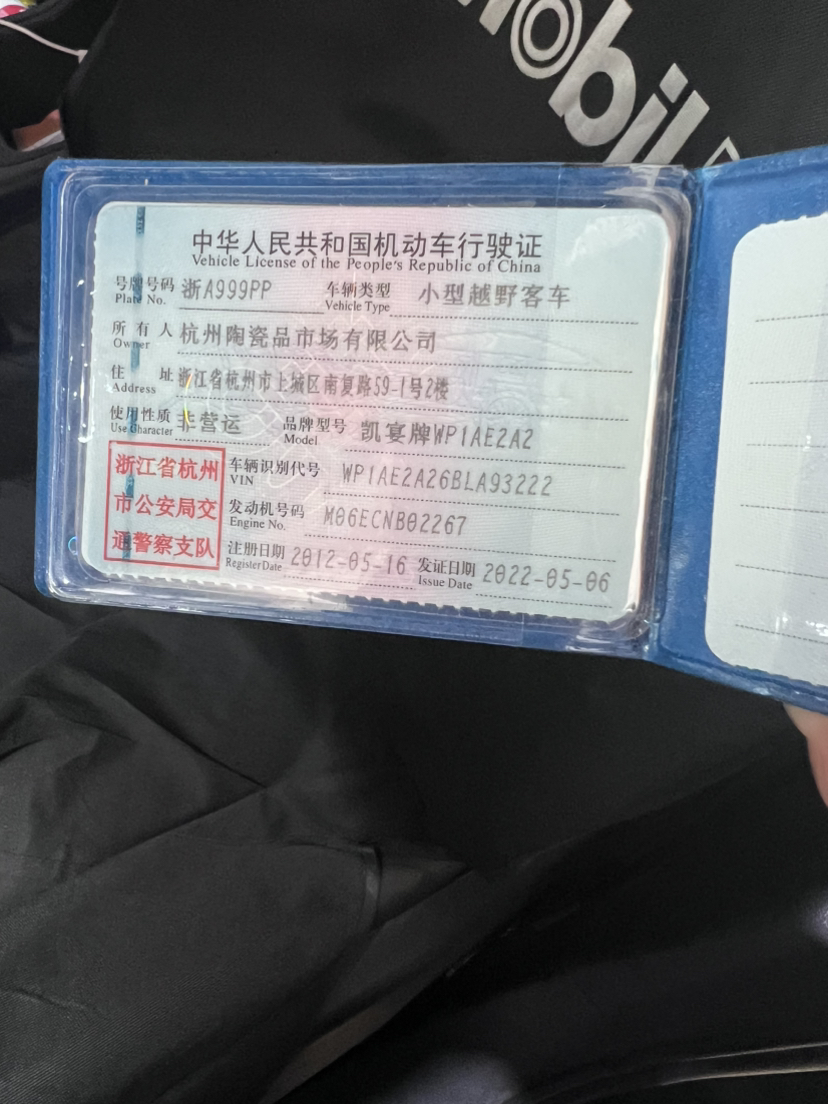 mobil
中华人民共和国机动车行驶证
Vehicle License of the People's Republic of China
号牌号码 浙A999PP 车辆类型 小型越野客车
Plate No. Vehicle Type
所有人 杭州陶瓷品市场有限公司
Owner
住址 浙江省杭州市上城区南复路59-1号2楼
Address
使用性质 非营运 品牌型号 凯宴牌WP1AE2A2
Use Character Model
浙江省杭州
市公安局交
通警察支队
车辆识别代号 WP1AE2A26BLA93222
VIN
发动机号码 M06ECNB02267
Engine No.
注册日期 2012-05-16 发证日期 2022-05-06
Register Date Issue Date